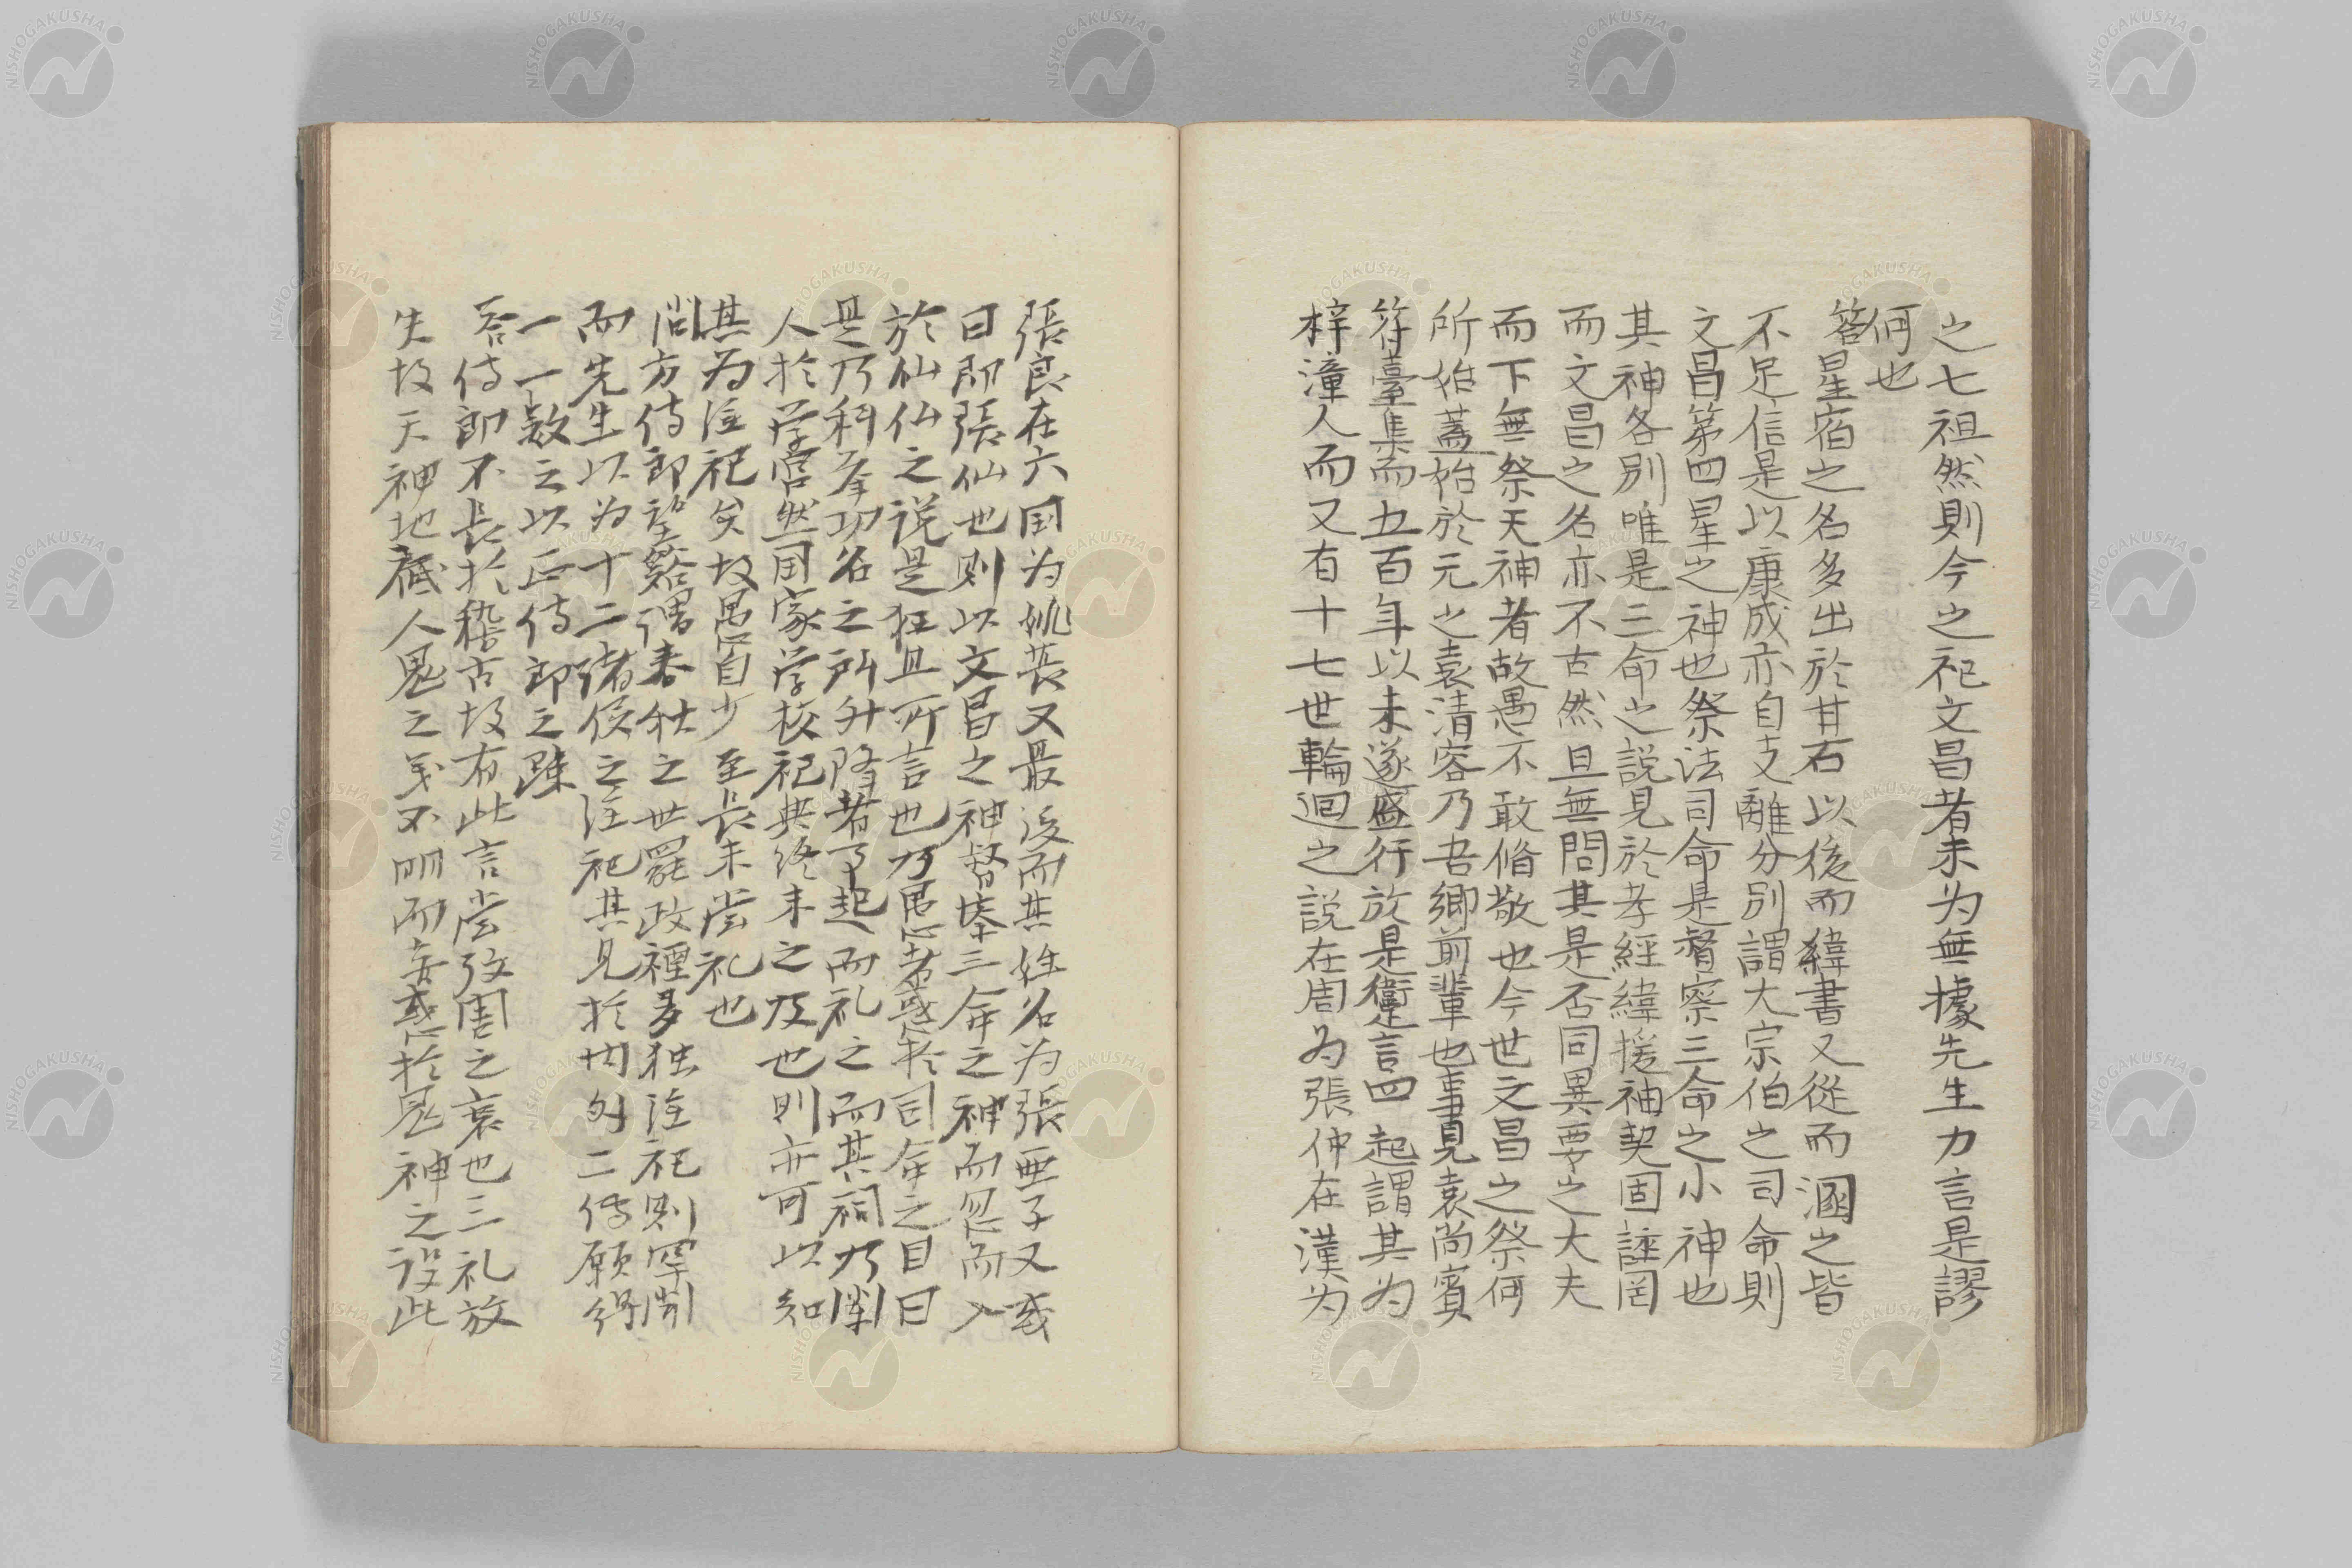 之七祖然則今之祀文昌者未为無據先生力言是謬
何也
答星宿之名多出於甘石以後而緯書又從而溷之皆
不足信是以康成亦自支離分別謂大宗伯之司命則
文昌第四星之神也祭法司命是督察三命之小神也
其神各別唯是三命之説見於孝經緯援神契固誣罔
而文昌之名亦不古然旦無問其是否同異要之大夫
而下無祭天神者故愚不敢偹敬也今世文昌之祭何
所始蓋始於元之袁清容乃吾鄉前輩也事見袁尚寳
符臺集而五百年以来遂盛行放是衛言四起謂其为
梓潼人而又有十七世輪迴之説在周为張仲在漢为
張良在六国为姚萇又最後而其姓名为張亜子又或
曰即張仙也則以文昌之神督三命之神而忽而入
於仙仙之说是狂且所言也乃愚者惑於司命之目曰
是乃科举功名之所升降者争起而礼之而其祠乃闌
人於学宫然国家学校祀典終未之及也則亦可以知
其为淫祀矣故愚自少至長未尝礼也
问方侍郎望谿谓春秋之世罷政禋多独淫祀則罕闻
而先生以为十二诸侯之淫祀其見於内外二傳願得
一一数之以正侍郎之踈
答侍郎不長於稽古故有此言尝攷周之衰也三礼放
失故天神地祗人鬼之義不明而妄惑於鬼神之说此